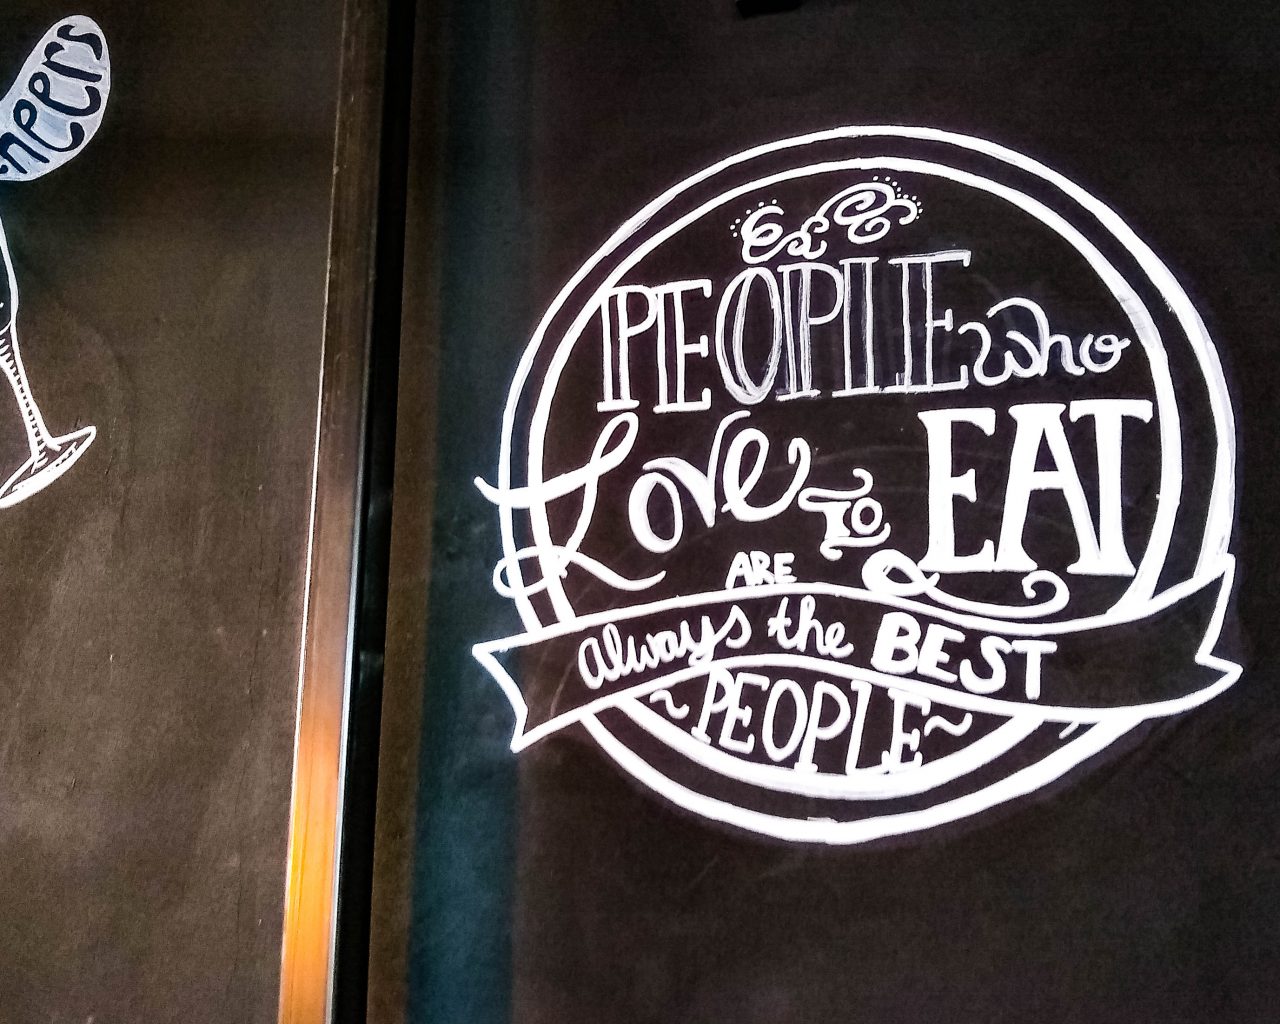 PEOPLE who
Love to EAT
ARE
always the BEST
~PEOPLE~